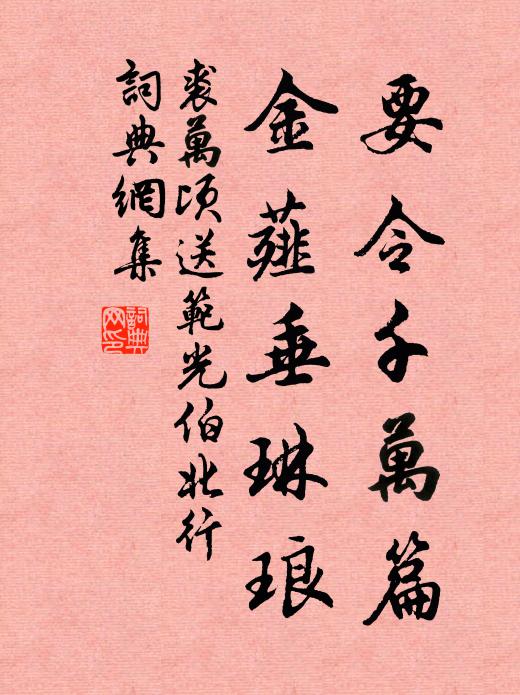 要令千萬篇
金薤垂琳琅
裘萬頃送範光伯北行
詞典網集
詞典网印